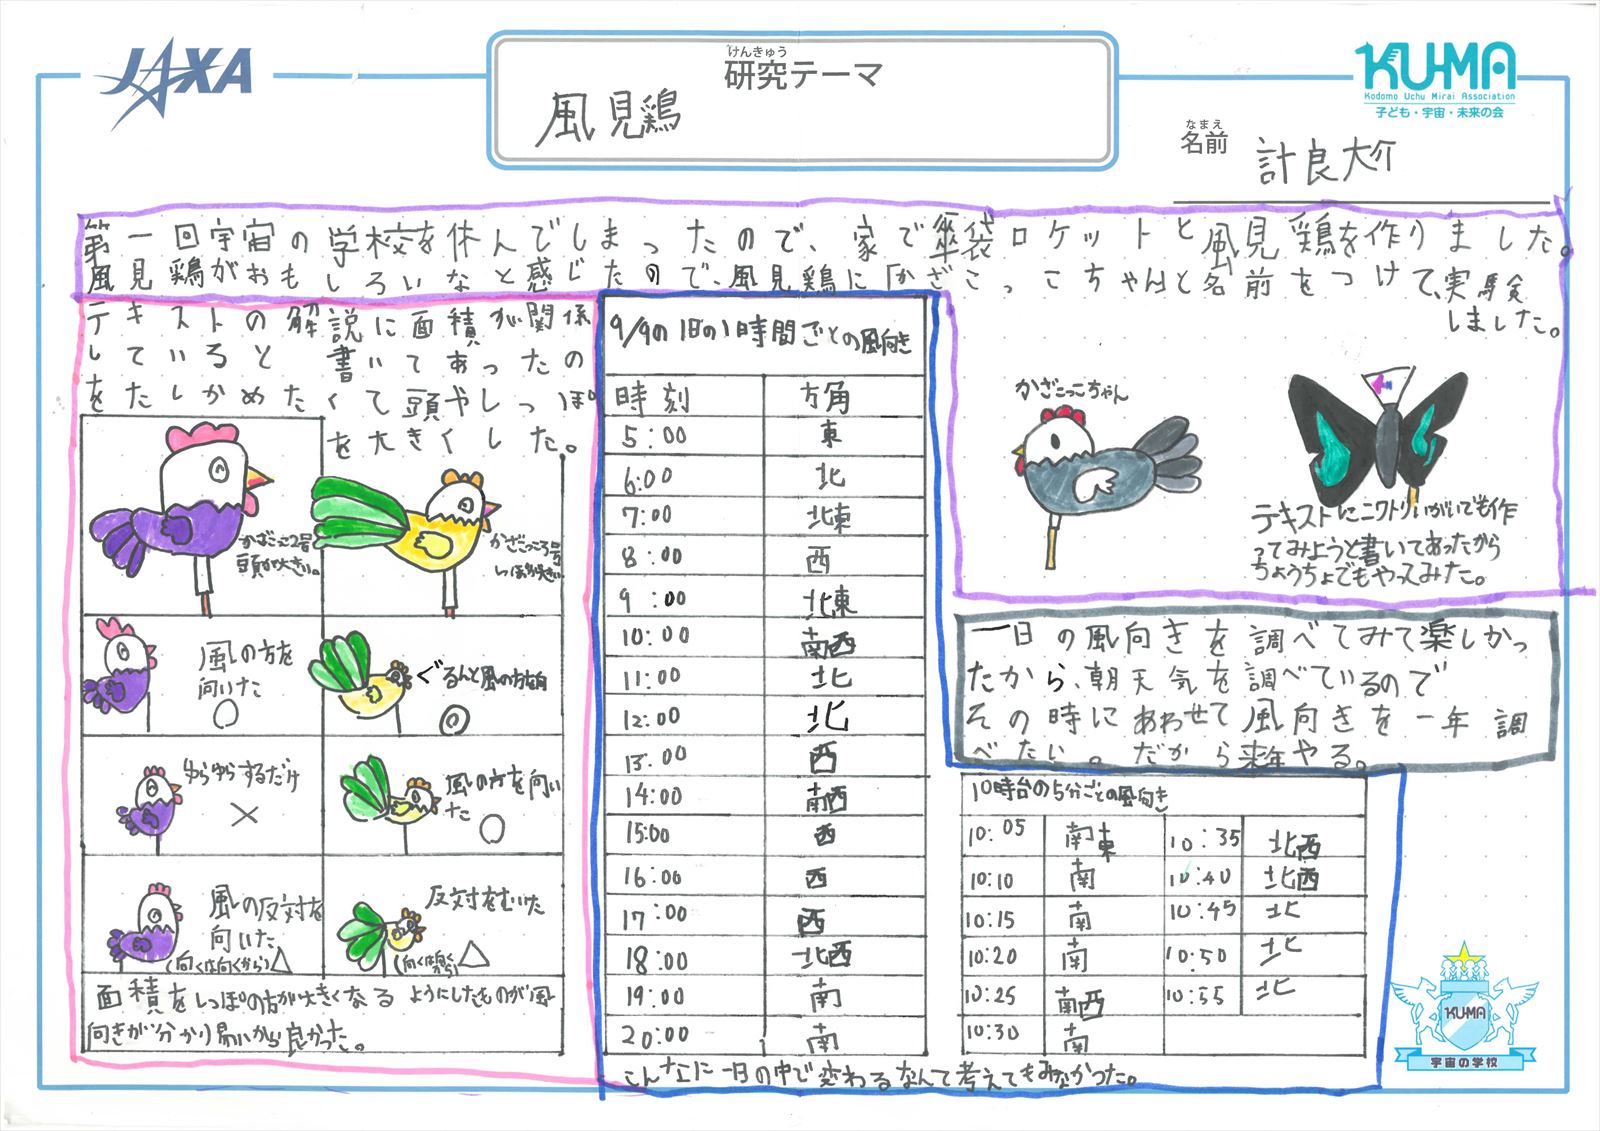 JAXA
けんきゅう
研究テーマ
風見鶏
KUMA
Kodomo Uchu Mirai Association
子ども・宇宙・未来の会
なまえ
名前
計良大介
第一回宇宙の学校を休んでしまったので、家で傘袋ロケットと風見鶏を作りました。
風見鶏がおもしろいなと感じたので、風見鶏に「かざこっこちゃんと名前をつけて、実験
しました。
テキストの解説に面積が関係
していると書いてあったの
をたしかめたくて頭やしっぽ
を大きくした。
かざこっこ2号
頭が大きい。
かざこっこ3号
しっぽが大きい
風の方を
向いた
○
ぐるんと風の方を向
◎
ゆらゆらするだけ
×
風の方を向い
た
○
風の反対を
向いた
(向くは向くから)△
反対をむいた
(向くは向く
から)△
面積をしっぽの方が大きくなるようにしたものが風
向きが分かり易いから良かった。
9/9の1日の1時間ごとの風向き
時刻 方角
5:00 東
6:00 北
7:00 北東
8:00 西
9:00 北東
10:00 南西
11:00 北
12:00 北
13:00 西
14:00 南西
15:00 西
16:00 西
17:00 西
18:00 北西
19:00 南
20:00 南
こんなに一日の中で変わるなんて考えてもみなかった。
かざこっこちゃん
テキストにニワトリいがいでも作
ってみようと書いてあったから
ちょうちょでもやってみた。
一日の風向きを調べてみて楽しかっ
たから、朝天気を調べているので
その時にあわせて風向きを一年調
べたい。だから来年やる。
10時台の5分ごとの風向き
10:05 南東 10:35 北西
10:10 南 10:40 北西
10:15 南 10:45 北
10:20 南 10:50 北
10:25 南西 10:55 北
10:30 南
KUMA
宇宙の学校